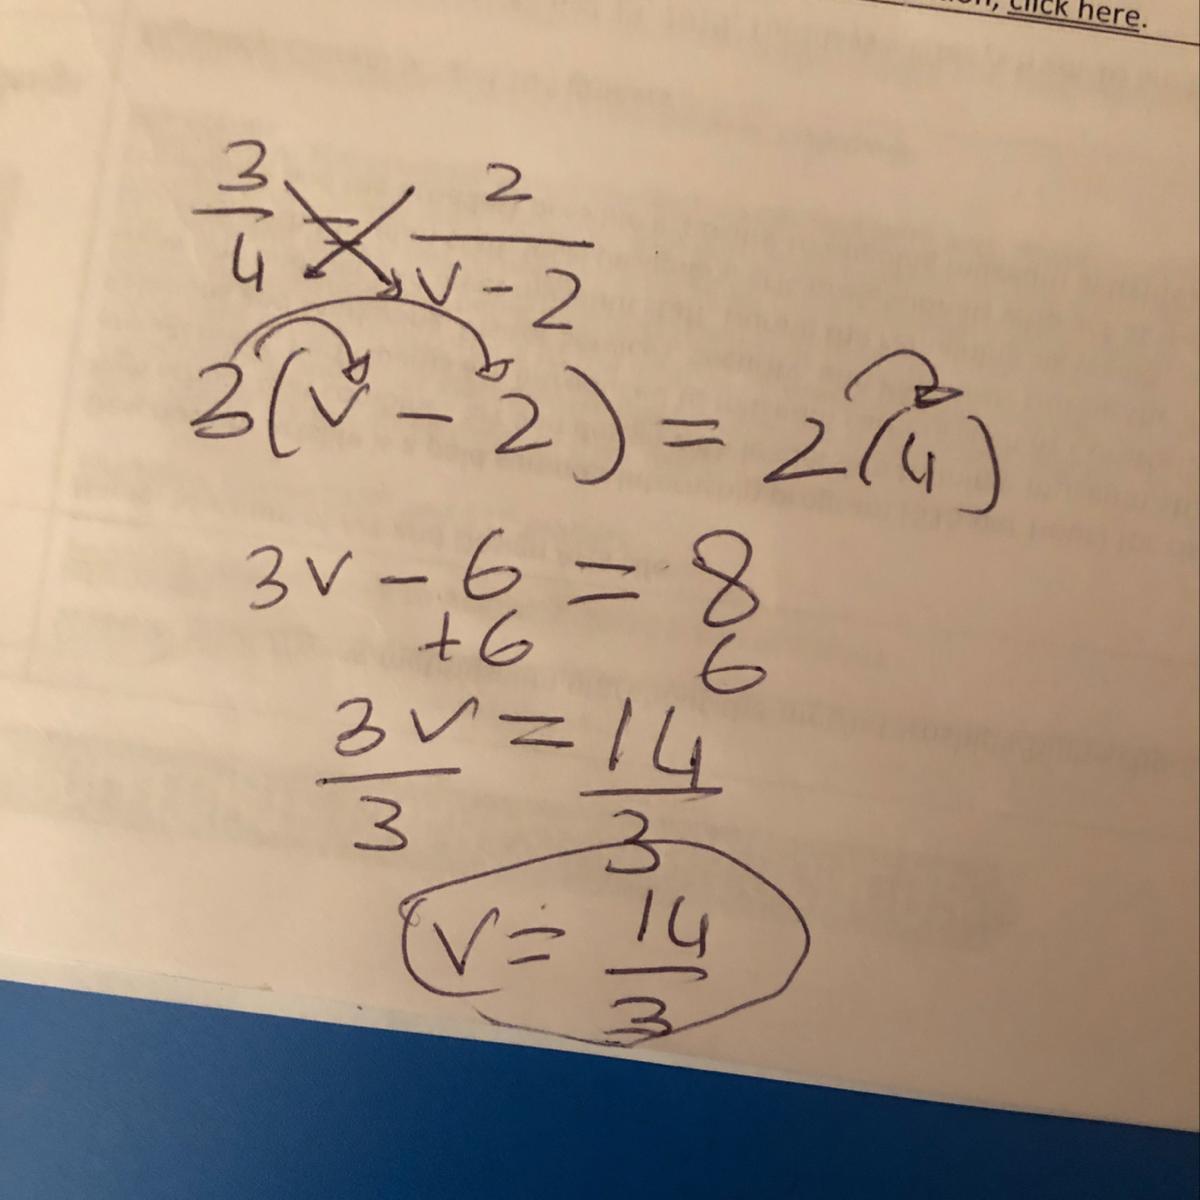 click here.
3/4 = 2/(v - 2)
3(v - 2) = 2(4)
3v - 6 = 8
+6 6
3v/3 = 14/3
v = 14/3